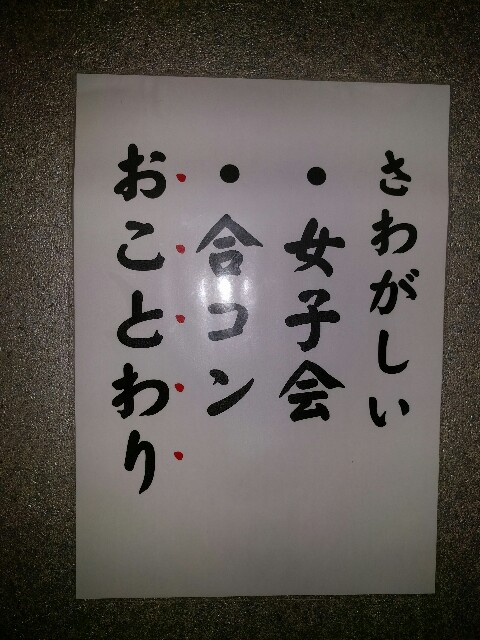 さわがしい
・女子会
・合コン
おことわり